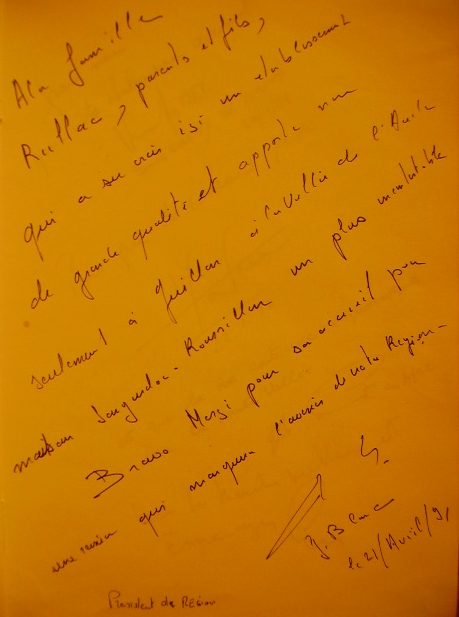 A la famille
Rullac, parents et fils,
qui a su créer ici un établissement
de grande qualité et apporte non
seulement à Quillan à la Vallée de l'Aude
mais au Languedoc-Roussillon un plus incontestable
Bravo Merci pour son accueil pour
une réunion qui marquera l'avenir de notre Région-
J. Blanc
le 21/Avril/91
Président de Région